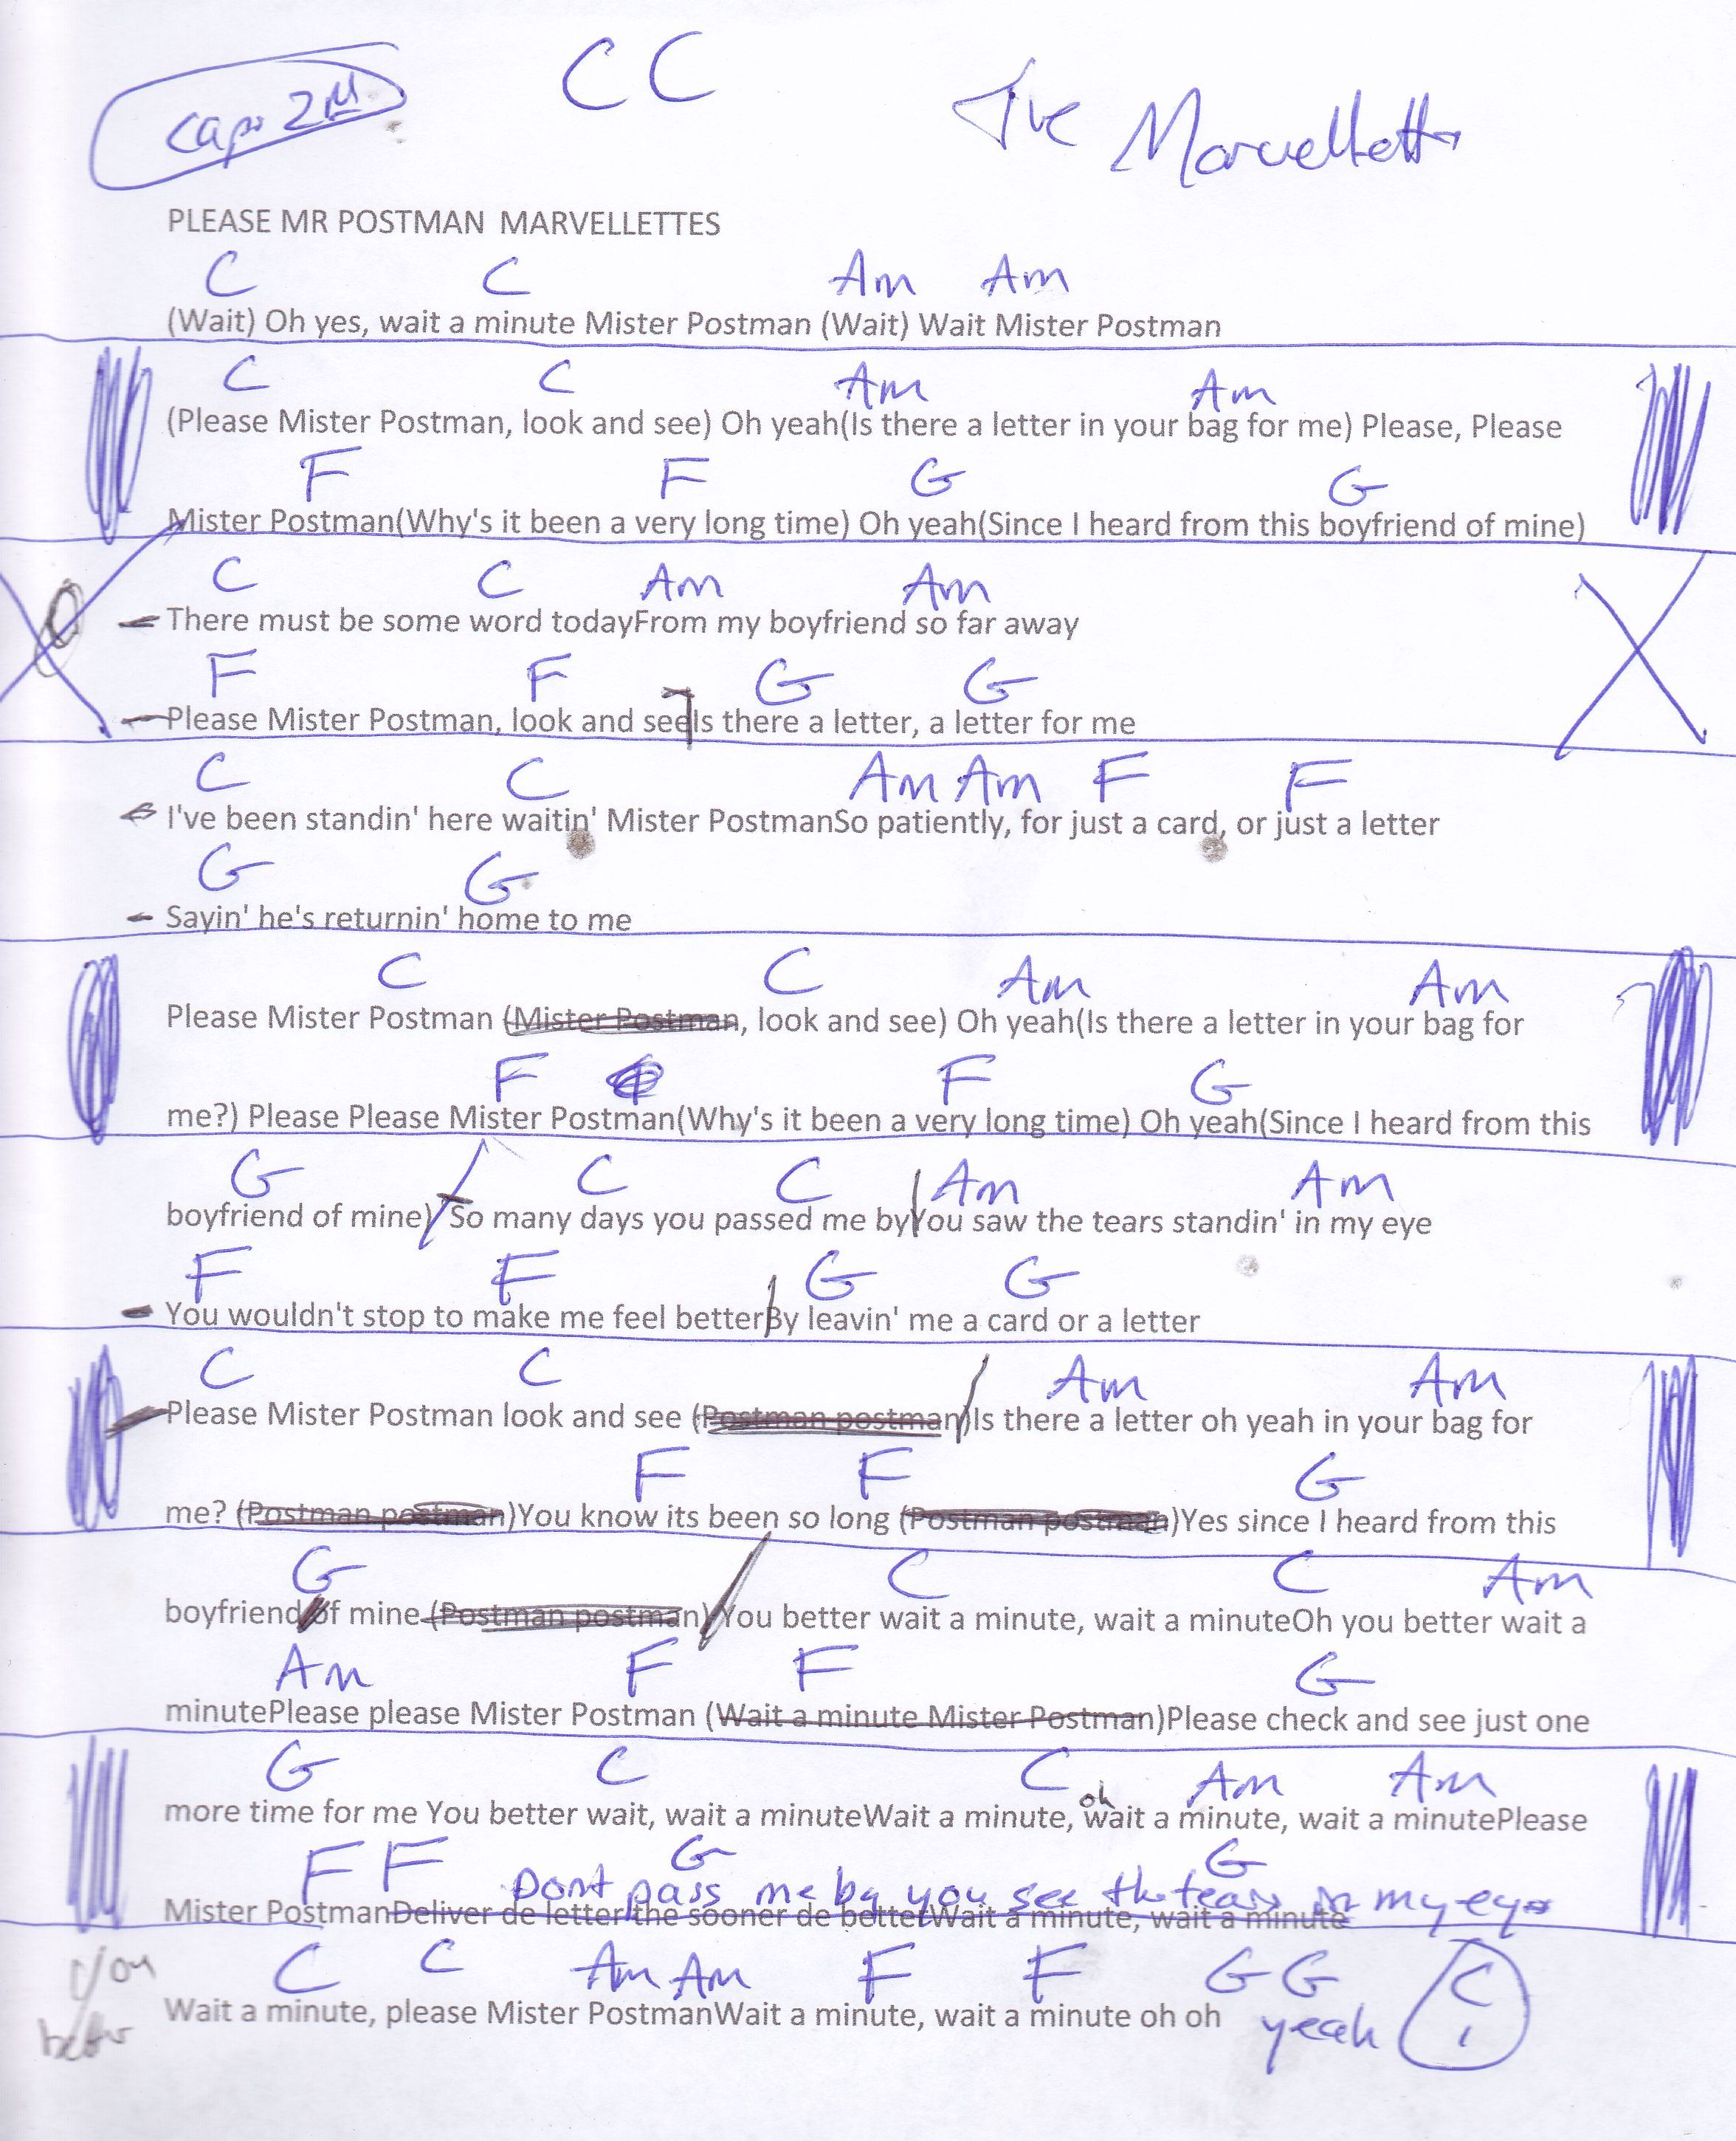 capo 2nd
C C
The Marvellettes
PLEASE MR POSTMAN MARVELLETTES
C C Am Am
(Wait) Oh yes, wait a minute Mister Postman (Wait) Wait Mister Postman
C C Am Am
(Please Mister Postman, look and see) Oh yeah(Is there a letter in your bag for me) Please, Please
F F G G
Mister Postman(Why's it been a very long time) Oh yeah(Since I heard from this boyfriend of mine)
C C Am Am
There must be some word todayFrom my boyfriend so far away
F F G G
Please Mister Postman, look and seeIs there a letter, a letter for me
C C Am Am F F
I've been standin' here waitin' Mister PostmanSo patiently, for just a card, or just a letter
G G
Sayin' he's returnin' home to me
C C Am Am
Please Mister Postman (Mister Postman, look and see) Oh yeah(Is there a letter in your bag for
F F G
me?) Please Please Mister Postman(Why's it been a very long time) Oh yeah(Since I heard from this
G C C Am Am
boyfriend of mine) So many days you passed me byYou saw the tears standin' in my eye
F F G G
You wouldn't stop to make me feel betterBy leavin' me a card or a letter
C C Am Am
Please Mister Postman look and see (Postman postman)Is there a letter oh yeah in your bag for
F F G
me? (Postman postman)You know its been so long (Postman postman)Yes since I heard from this
G C C Am
boyfriend of mine (Postman postman)You better wait a minute, wait a minuteOh you better wait a
Am F F G
minutePlease please Mister Postman (Wait a minute Mister Postman)Please check and see just one
G C C oh Am Am
more time for me You better wait, wait a minuteWait a minute, wait a minute, wait a minutePlease
F F G G
Dont pass me by you see the tears in my eyes
Mister PostmanDeliver de letter the sooner de betterWait a minute, wait a minute
you better
C C Am Am F F G G C
Wait a minute, please Mister PostmanWait a minute, wait a minute oh oh yeah